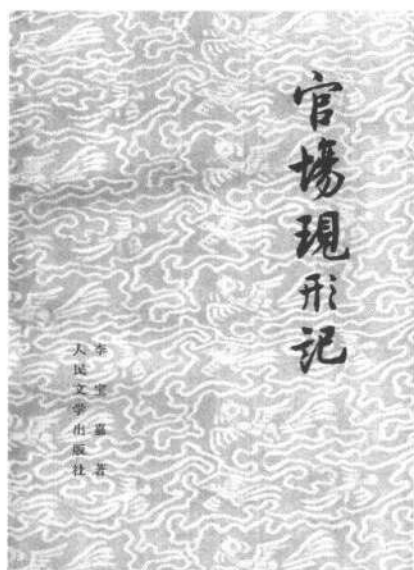 官場現形記
李宝嘉著
人民文学出版社